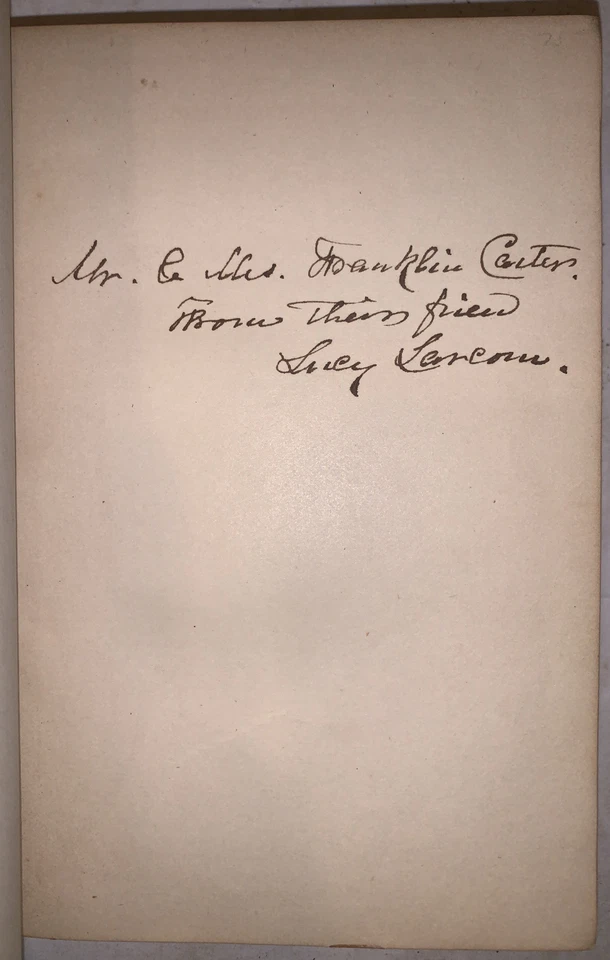 Mr. & Mrs. Franklin Carter.
From their friend
Lucy Larcom.